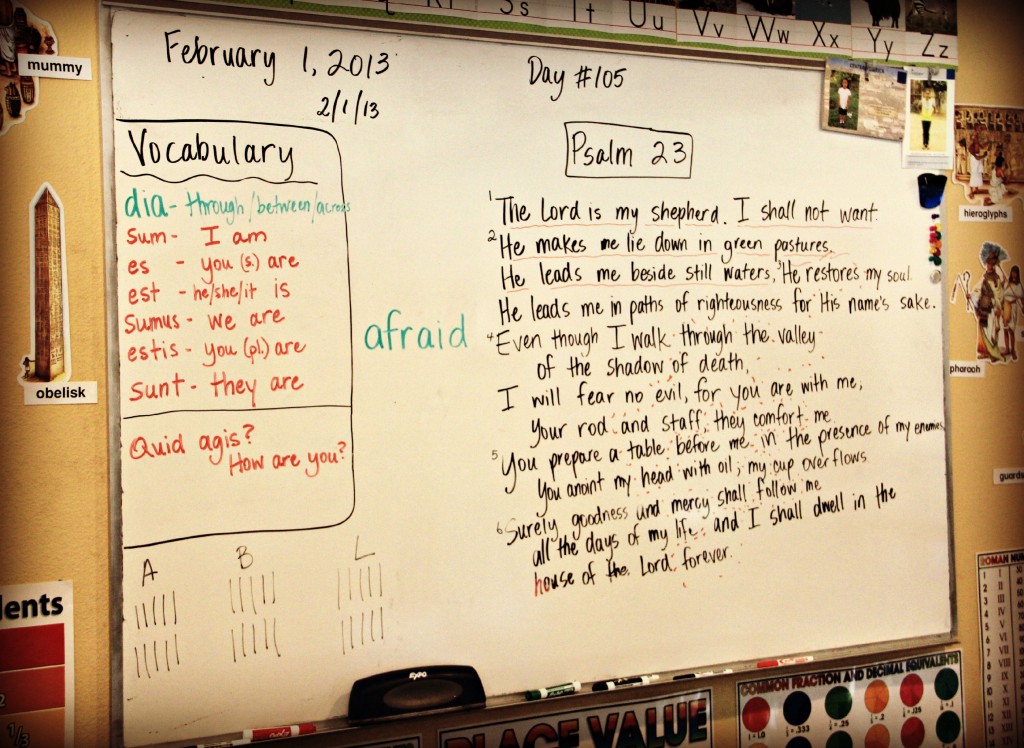 Ss Tt Uu Vv Ww Xx Yy Zz
mummy
February 1, 2013
Day #105
2/1/13
Vocabulary
dia - through/between/across
sum - I am
es - you (s.) are
est - he/she/it is
sumus - we are
estis - you (pl.) are
sunt - they are
Quid agis?
How are you?
afraid
Psalm 23
1 The Lord is my shepherd. I shall not want.
2 He makes me lie down in green pastures.
He leads me beside still waters, 3 He restores my soul.
He leads me in paths of righteousness for His name's sake.
4 Even though I walk through the valley
of the shadow of death,
I will fear no evil, for you are with me,
your rod and staff, they comfort me
5 You prepare a table before me in the presence of my enemies,
You anoint my head with oil; my cup overflows
6 Surely goodness and mercy shall follow me
all the days of my life and I shall dwell in the
house of the Lord forever.
A B L
obelisk
hieroglyphs
pharaoh
EXPO
PLACE VALUE
COMMON FRACTION AND DECIMAL EQUIVALENTS
ROMAN NU
lents
1/3